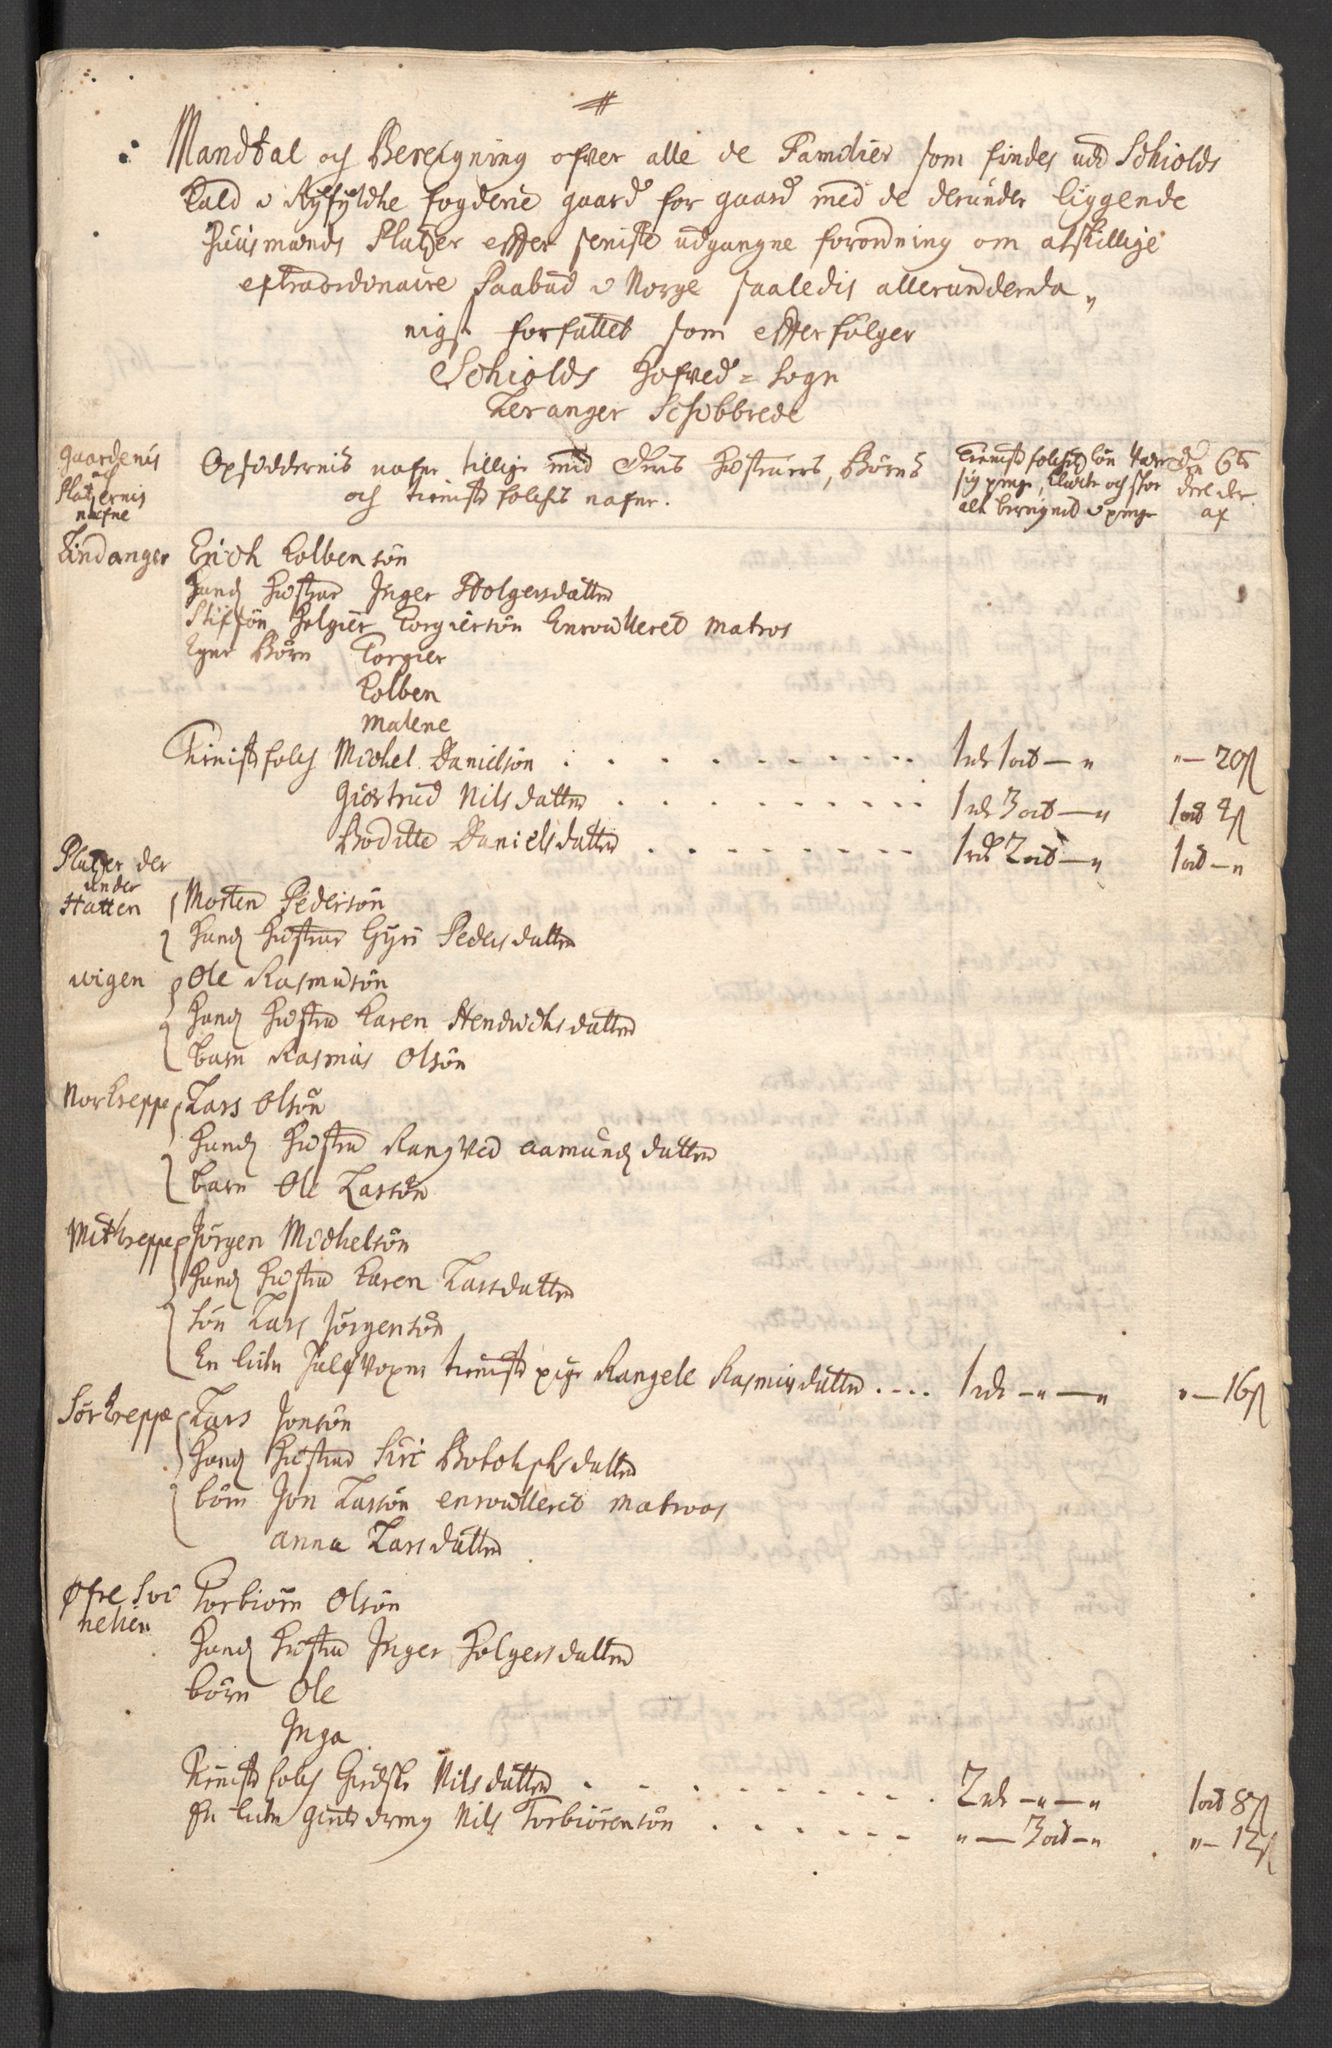 Mandtal och Beregning ofver alle de Familier som findes udi Schiolds
Kald i Ryfylche fogderie gaard for gaard med de derunder liggende
Huusmænds Platzer efter seniste udgangne forordning om atskillige
extraordinaire Paabud i Norge saaledis allerunderda„
nigst forfattet som efterfølger
Schiolds Hofved = Sogn
Leranger Schibbrede
Gaardenis och Platzernis nafne
Opsiddernis nafne tillige med deris Hustruers, Børns
och tieniste folchis nafne.
Tieniste folchis løn
sig penge, Klæde och skoe
alt beregned i penge
6te deel der af
Lindanger Erich Kolbensøn
Hands Hustrue Inger Holgersdatter
Stifsøn Holgier Torgiersøn Enroulleret Matros
Egne Børn Torgier
Kolben
Malene
Tieniste folch Michel Danielsøn . . . . 1 rdr 1 ort — „ „ — 20 ß
Giertrud Nilsdatter . . . . 1 rdr 3 ort — „ 1 ort 4 ß
Boditte Danielsdatter . . . . 1 rdr 2 ort — „ 1 ort — „
Platzer der under
Hatten Morten Pedersøn
Hands Hustrue Gyri Pedersdatter
Wigen Ole Rasmusøn
Hands Hustru Karen Hendrichsdatter
barn Rasmus Olsøn
Norkreppe Lars Olsøn
Hands Hustru Rangved Aamundsdatter
barn Ole Larsøn
Mitkreppe Jørgen Michelsøn
Hands Hustru Karen Larsdatter
søn Lars Jørgensøn
En liden halfvoxen tieniste pige Rangele Rasmusdatter . . . . 1 rdr — „ — „ „ — 16 ß
Sørkreppe Lars Jonsøn
Hands Hustrue Siri Botolphsdatter
børn Jon Larsøn enroulleret Matroos
Anna Larsdatter
Øfre Svi
nelien Torbiørn Olsøn
Hands Hustru Inger Holgersdatter
børn Ole
Inga
Tieniste folch Nilsdatter . . . . 2 rdr — „ — „ 1 ort 8 ß
En liden dreng Nils Torbiørensøn . . . . „ — 3 ort — „ „ — 12 ß